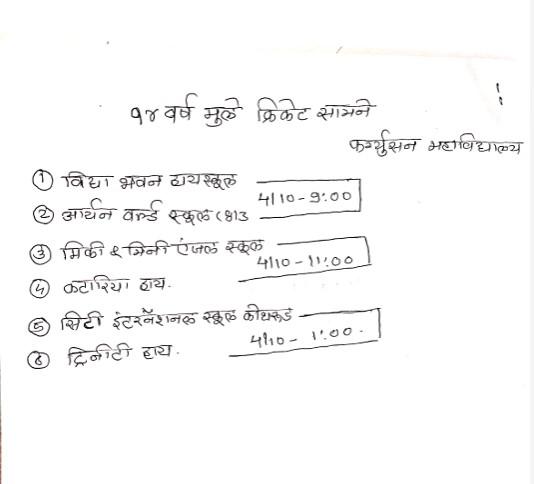 १४ वर्ष मुले क्रिकेट सामने
फर्ग्युसन महाविद्यालय
① विद्या भवन हायस्कूल
4/10 - 9:00
② आर्यन वर्ल्ड स्कूल
③ मिकी & मिनी एंजल स्कूल
4/10 - 11:00
④ कटारिया हाय.
⑤ सिटी इंटरनॅशनल स्कूल कोथरूड
4/10 - 1:00.
⑥ ट्रिनीटी हाय.